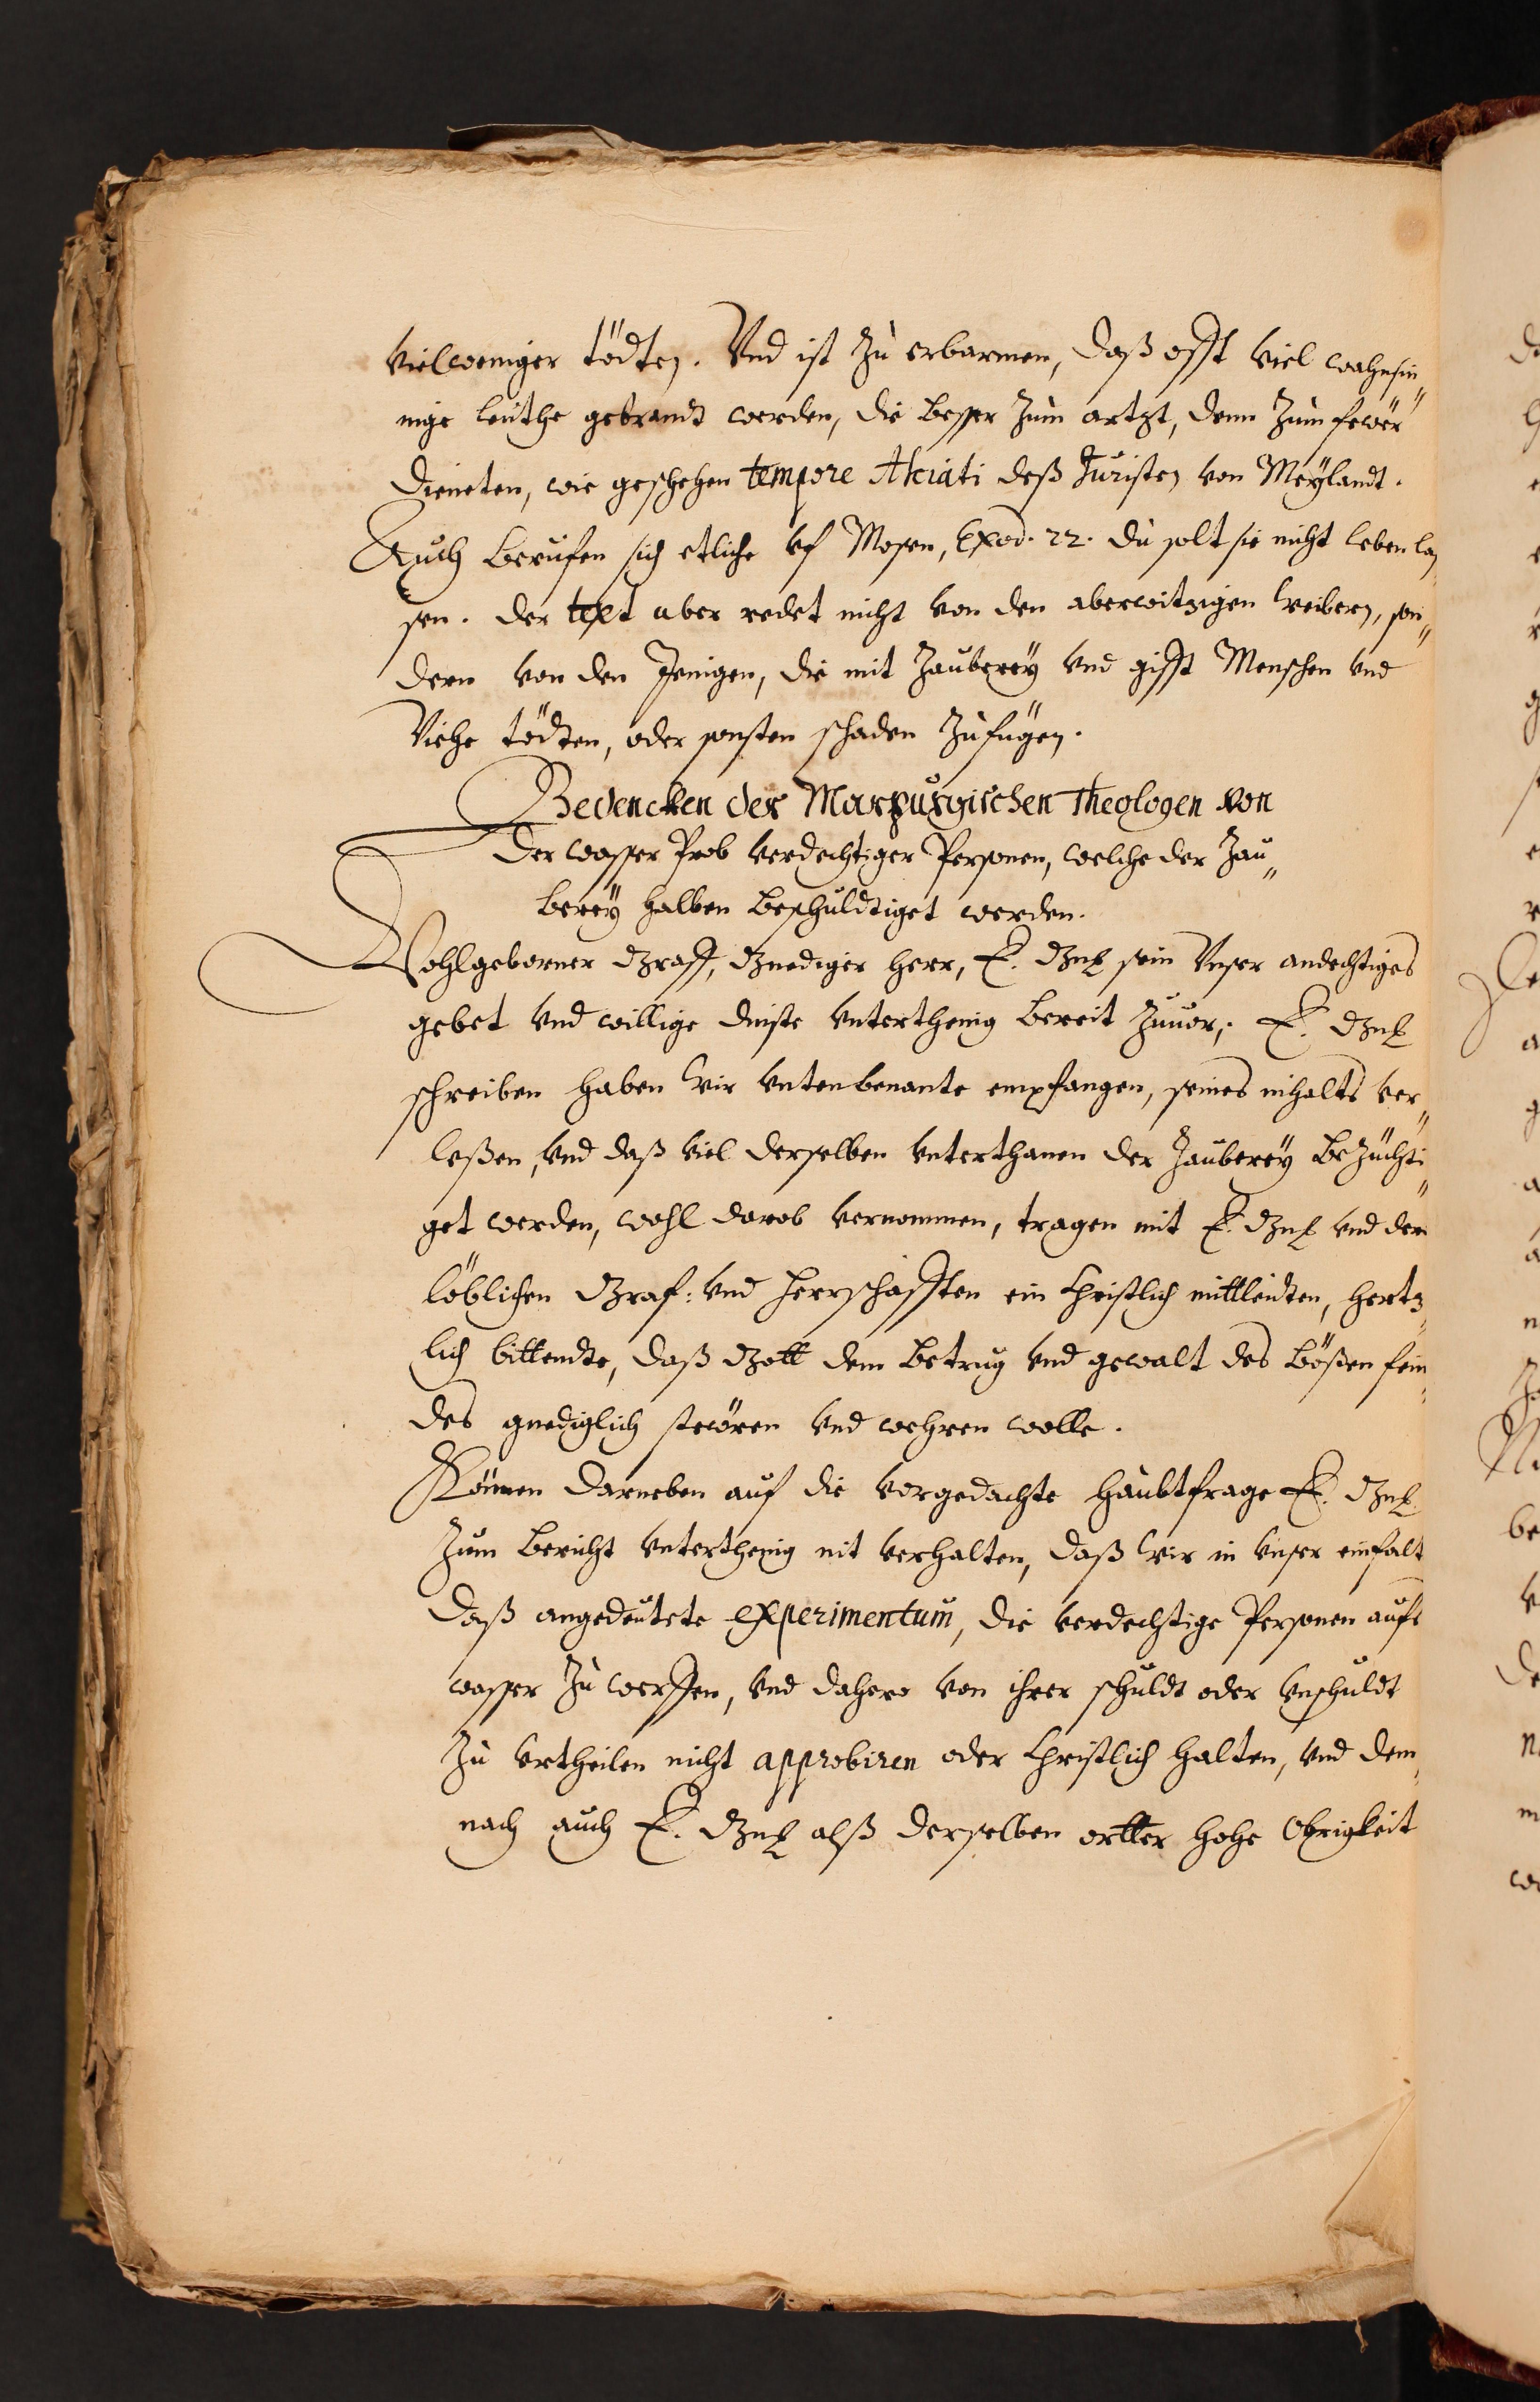 vielweniger tödten. Vnd ist zu erbarmen, daß offt viel wahnsin„
nige leuthe gebrandt werden, die besser zum artzt, denn zum fewer
dieneten, wie geschehen tempore Alciati deß Juristen von Meylandt.
Auch berufen sich etliche vf Mosen, Exod. 22. du solt sie nicht leben las„
sen. der text aber redet nicht von den aberwitzigen weibern, son„
dern von den Jenigen, die mit Zauberey vnd gifft Menschen vnd
Viehe tödten, oder sonsten schaden zufügen.
Bedencken der Marpurgischen Theologen von
der wasser Prob verdechtiger Personen, welche der Zau„
berey halben beschuldtiget werden.
Wohlgeborner Graff, Gnediger Herr, E. Gn. sein Vnser andechtiges
gebet vnd willige dinste vnterthenig bereit zuuor, E. Gn.
schreiben haben wir vntenbenante empfangen, seines inhalts ver„
leßen, vnd daß viel derselben vnterthanen der Zauberey bezüchti„
get werden, wohl darob vernommen, tragen mit E. Gn. vnd der
löblichen Graf: vnd Herrschafften ein Christlich mittleidten, hertz„
lich bittendte, daß Gott dem betrug vnd gewalt des bößen fein„
des gnediglich stewren vnd wehren wolle.
Können darneben auf die vorgedachte haubtfrage E. Gn.
zum bericht vnterthenig nit verhalten, daß wir in vnser einfalt
daß angedeutete experimentum, die verdechtige Personen aufs
wasser zu werffen, vnd dahero von ihrer schuldt oder vnschuldt
zu vrtheilen nicht approbiren oder Christlich halten, vnd dem„
nach auch E. Gn. alß derselben ortter hohe Obrigkeit